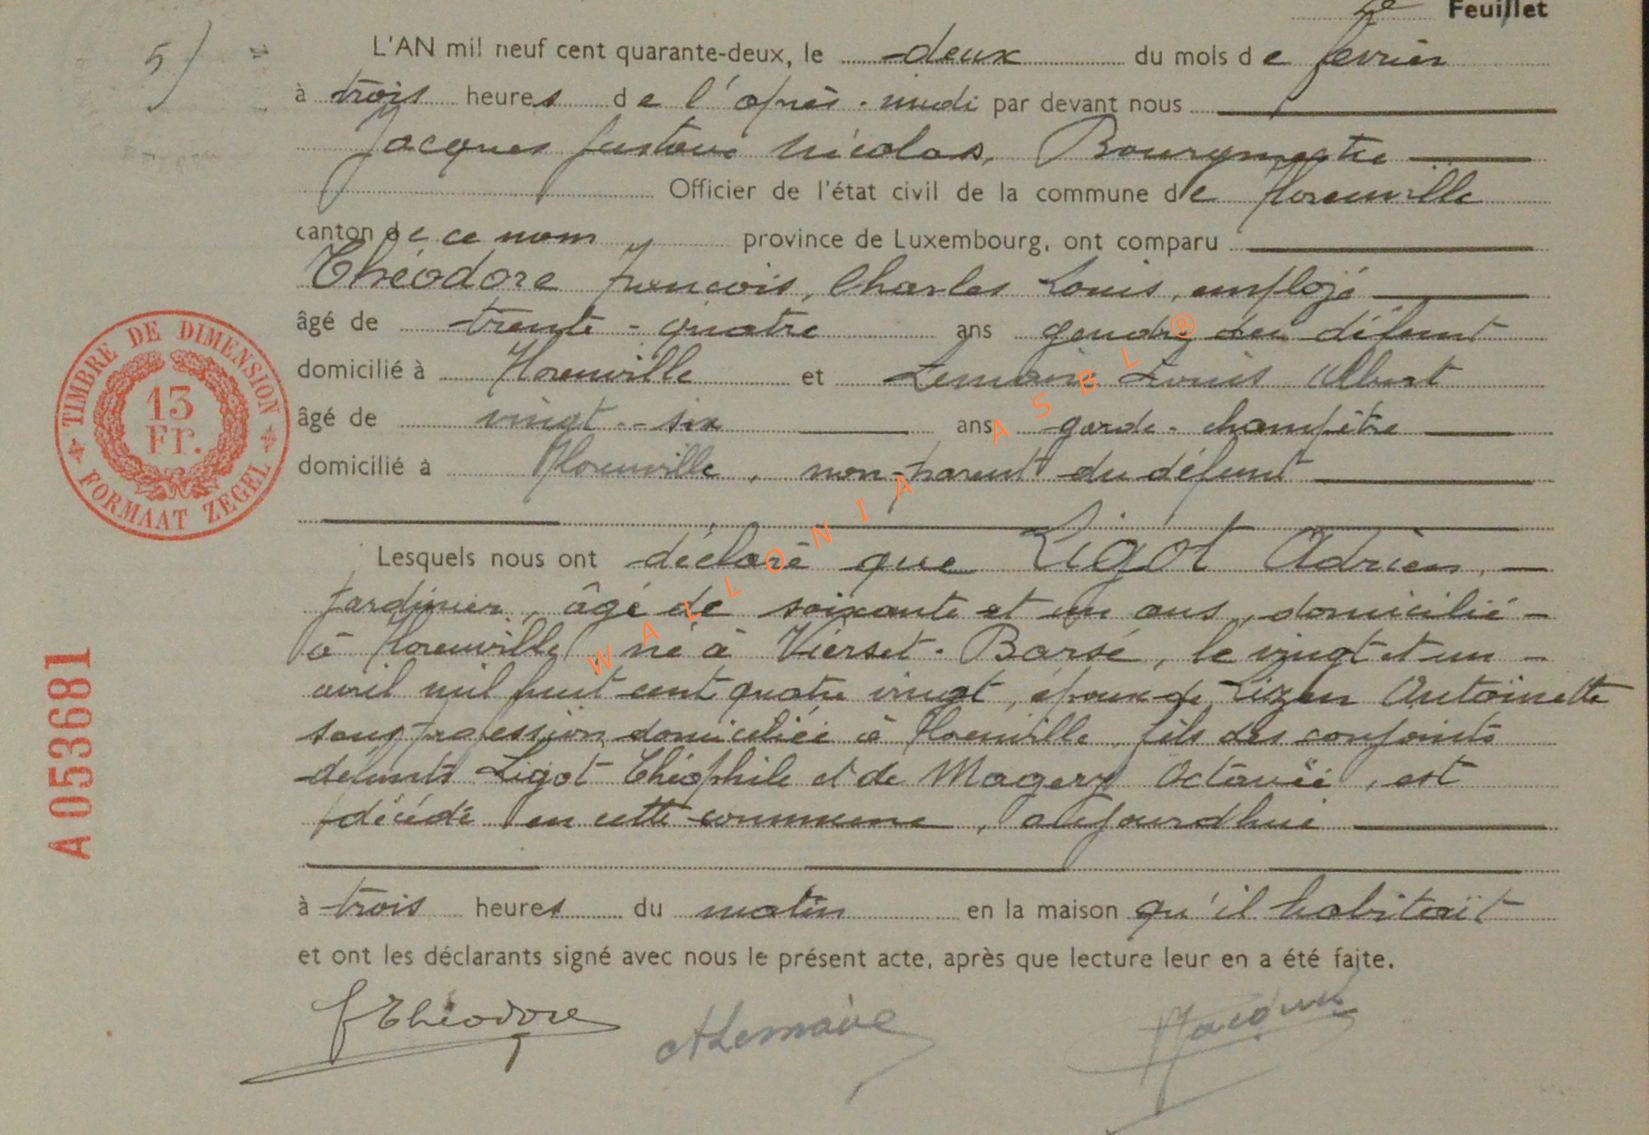 2e Feuillet
5)
L'AN mil neuf cent quarante-deux, le deux du mois de février
à trois heures de l'après-midi par devant nous
Jacques Gustave Nicolas, Bourgmestre
Officier de l'état civil de la commune de Florenville
canton de ce nom province de Luxembourg, ont comparu
Théodore François, Charles Louis, employé
âgé de trente-quatre ans gendre du défunt
domicilié à Florenville et Lemaire Louis Albert
âgé de vingt-six ans garde-champêtre
domicilié à Florenville, non-parent du défunt
Lesquels nous ont déclaré que Ligot Adrien,
jardinier, âgé de soixante et un ans, domicilié
à Florenville né à Vierset-Barse, le vingt et un
avril mil huit cent quatre vingt, époux de Lizen Antoinette
sans profession domiciliée à Florenville, fils des conjoints
défunts Ligot Théophile et de Magery Octavie, est
décédé en cette commune, aujourd'hui
à trois heures du matin en la maison qu'il habitait
et ont les déclarants signé avec nous le présent acte, après que lecture leur en a été faite.
F Théodore ALemaire GJacques
TIMBRE DE DIMENSION
13
Fr.
FORMAAT ZEGEL
A 053681
WALLONIA ASBL®